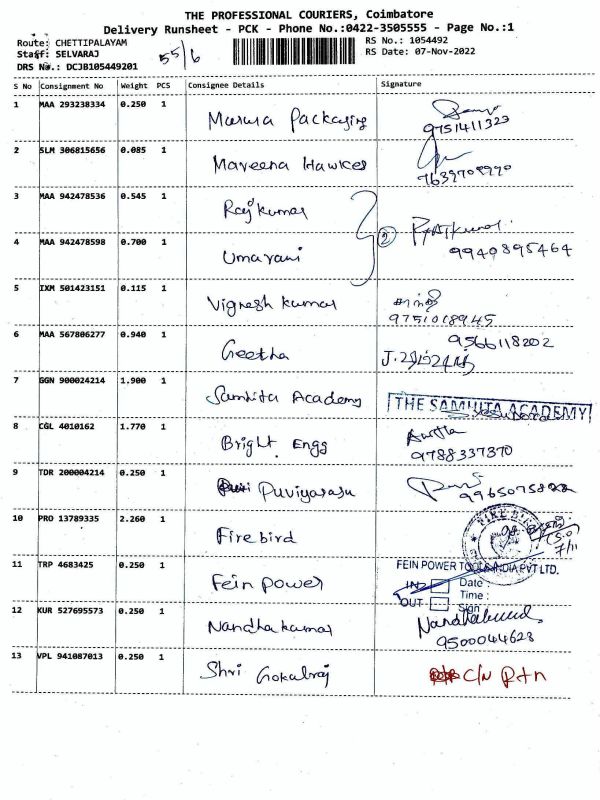 THE PROFESSIONAL COURIERS, Coimbatore
Delivery Runsheet - PCK - Phone No.:0422-3505555 - Page No.:1
Route: CHETTIPALAYAM
Staff: SELVARAJ
DRS No.: DCJB105449201
55/6
RS No.: 1054492
RS Date: 07-Nov-2022
S No Consignment No Weight PCS Consignee Details Signature
1 MAA 293238334 0.250 1 Maruva Packaging
9751411323
2 SLM 306815656 0.085 1 Maveena Hawkes
7639709990
3 MAA 942478536 0.545 1 Rajkumar
4 MAA 942478598 0.700 1 Umarani
2 Rajkumar
9940895464
5 IXM 501423151 0.115 1 Vignesh kumar
சாந்தி
9751018945
6 MAA 567806277 0.940 1 Geetha
9566118202
7 GGN 900024214 1.900 1 Samhita Academy
THE SAMHITA ACADEMY
8 CGL 4010162 1.770 1 Bright Engg
9788337370
9 TDR 200004214 0.250 1 Puviyarasu
10 PRO 13789335 2.260 1 Fire bird
FIRE BIRD
7/11
11 TRP 4683425 0.250 1 Fein power
FEIN POWER TOOLS INDIA PVT LTD.
IN Date :
Time :
OUT Sign
12 KUR 527695573 0.250 1 Nandhakumar
9500044628
13 VPL 941087013 0.250 1 Shri Gokulraj
C/N R+n